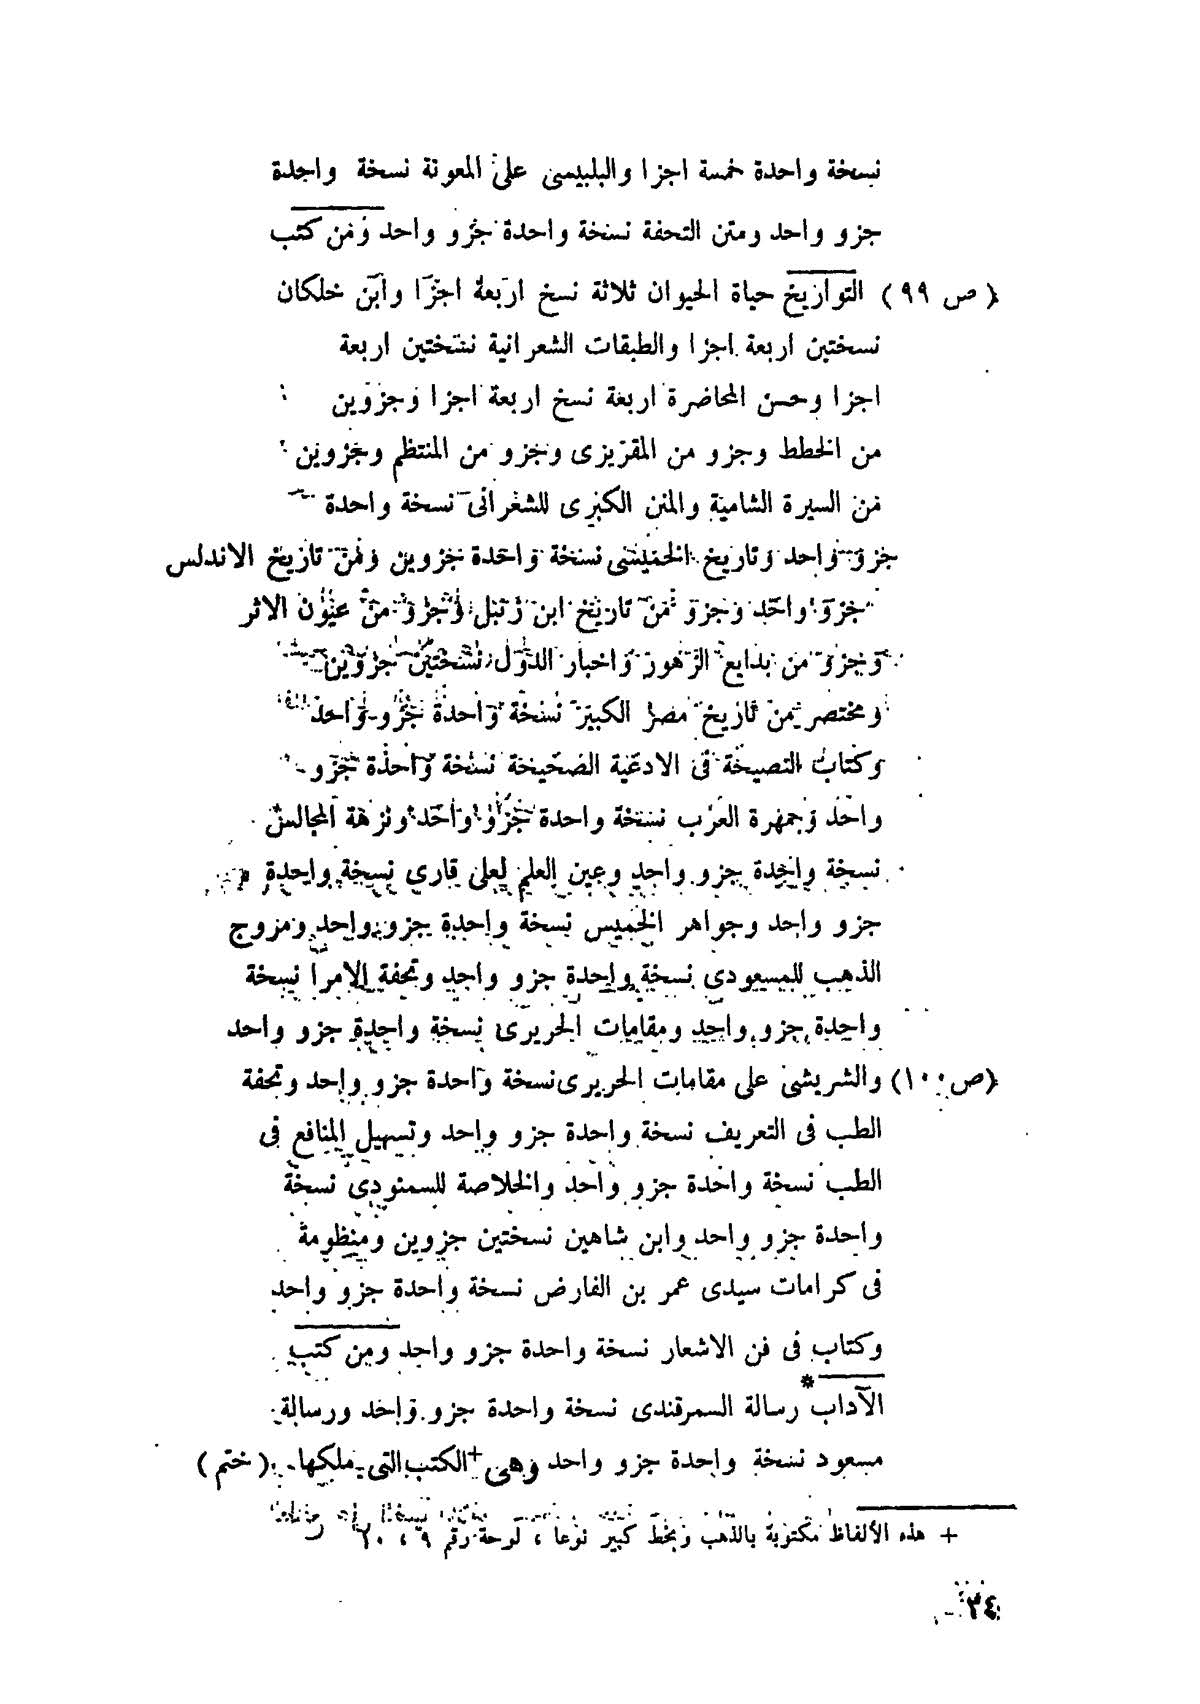 نسخة واحدة خمسة اجزا والبلبيسى على المعونة نسخة واحدة
جزو واحد ومتن التحفة نسخة واحدة جزو واحد ومن كتب
(ص ٩٩) التواريخ حياة الحيوان ثلاثة نسخ اربعة اجزا وابن خلكان
نسختين اربعة اجزا والطبقات الشعرانية نسختين اربعة
اجزا وحسن المحاضرة اربعة نسخ اربعة اجزا وجزوين
من الخطط وجزو من المقريزى وجزو من المنتظم وجزوين
من السيرة الشامية والمنن الكبرى للشعرانى نسخة واحدة
جزو واحد وتاريخ الخميسى نسخة واحدة جزوين ومن تاريخ الاندلس
جزو واحد وجزو من تاريخ ابن زنبل وجزو من عيون الاثر
وجزو من بدايع الزهور واخبار الدول نسختين جزوين
ومختصر من تاريخ مصر الكبير نسخة واحدة جزو واحد
وكتاب النصيحة فى الادعية الصحيحة نسخة واحدة جزو
واحد وجمهرة العرب نسخة واحدة جزو واحد ونزهة المجالس
نسخة واحدة جزو واحد وعين العلم لعلى قارى نسخة واحدة
جزو واحد وجواهر الخميس نسخة واحدة جزو واحد ومزوج
الذهب للمسعودى نسخة واحدة جزو واحد وتحفة الامرا نسخة
واحدة جزو واحد ومقامات الحريرى نسخة واحدة جزو واحد
(ص ١٠٠) والشريشى على مقامات الحريرى نسخة واحدة جزو واحد وتحفة
الطب فى التعريف نسخة واحدة جزو واحد وتسهيل المنافع فى
الطب نسخة واحدة جزو واحد والخلاصة للسمنودى نسخة
واحدة جزو واحد وابن شاهين نسختين جزوين ومنظومة
فى كرامات سيدى عمر بن الفارض نسخة واحدة جزو واحد
وكتاب فى فن الاشعار نسخة واحدة جزو واحد ومن كتب
الآداب* رسالة السمرقندى نسخة واحدة جزو واحد ورسالة
مسعود نسخة واحدة جزو واحد وهى + الكتب التى ملكها (ختم)
+ هذه الألفاظ مكتوبة بالذهب وبخط كبير نوعا ، لوحة رقم ٩ ، ٢٠
٢٤